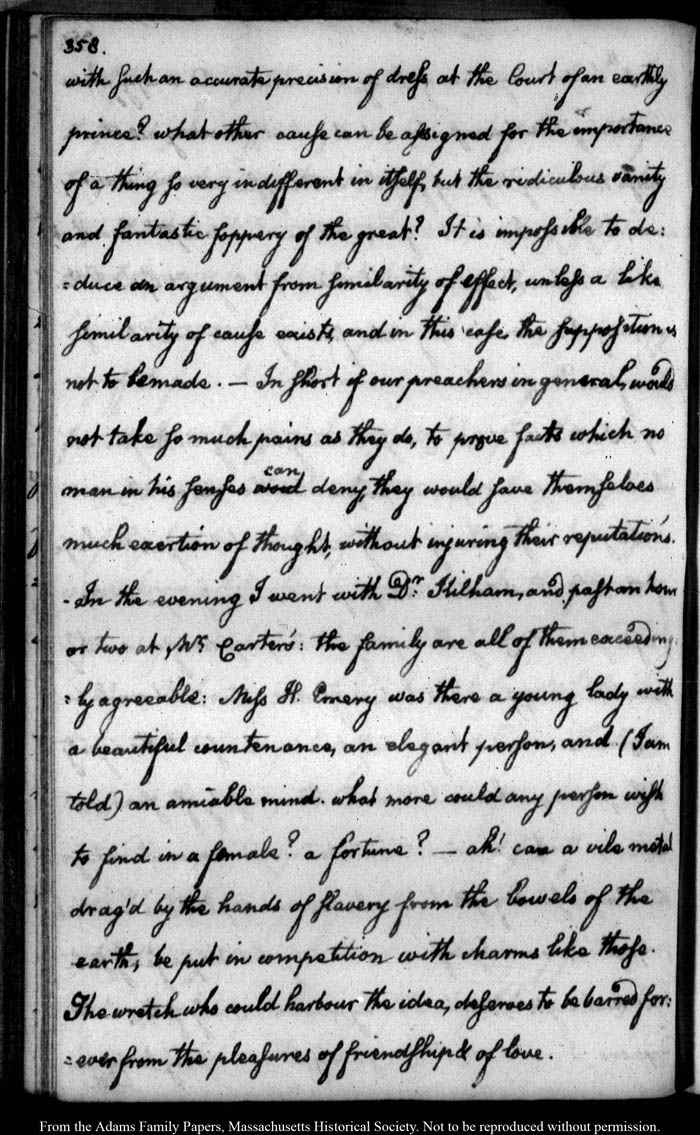 358.
with such an accurate precision of dress at the Court of an earthly
prince? what other cause can be assigned for the importance
of a thing so very indifferent in itself, but the ridiculous vanity
and fantastic foppery of the great? It is impossible to de:
=duce an argument from similarity of effect, unless a like
similarity of cause exists, and in this case, the supposition is
not to be made. — In short if our preachers in general, would
not take so much pains as they do, to prove facts which no
can
man in his senses deny, they would save themselves
much exertion of thought, without injuring their reputations.
- In the evening I went with Dr. Kilham, and past an hour
or two at, Mr. Carter's: the family are all of them exceeding
=ly agreeable: Miss H. Emery was there a young lady with
a beautiful countenance, an elegant person, and (I am
told) an amiable mind. what more could any person wish
to find in a female? a fortune? — ah! can a vile metal
drag'd by the hands of slavery from the bowels of the
earth, be put in competition with charms like those.
The wretch who could harbour the idea, deserves to be barred for:
=ever from the pleasures of friendship & of love.
From the Adams Family Papers, Massachusetts Historical Society. Not to be reproduced without permission.